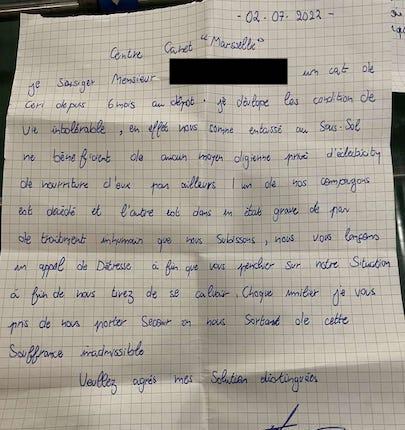 - 02.07.2022 -
Centre Canet "Marseille"
je Sousiger Monsieur un cat de
Ceri depuis 6 mois au dépot. je dévlope les condition de
Vie intolérable, en effet nous somme entassé au Sous-Sol
ne bénéficient de aucun moyen digienne privé d'électricity
de nourriture d'eux par ailleurs 1 un de nos compagons
est décidé et l'autre est dans un état grave de par
de traitment inhumain que nous Subissons, nous vous lançons
un appel de Détresse à fin que vous pencher sur notre Situation
à fin de nous tirez de se calivar. Choque imilier je vous
pris de nous porter Secour en nous Sortant de cette
Souffrance inadmissible
Veullez agrés mes Solution distinguées